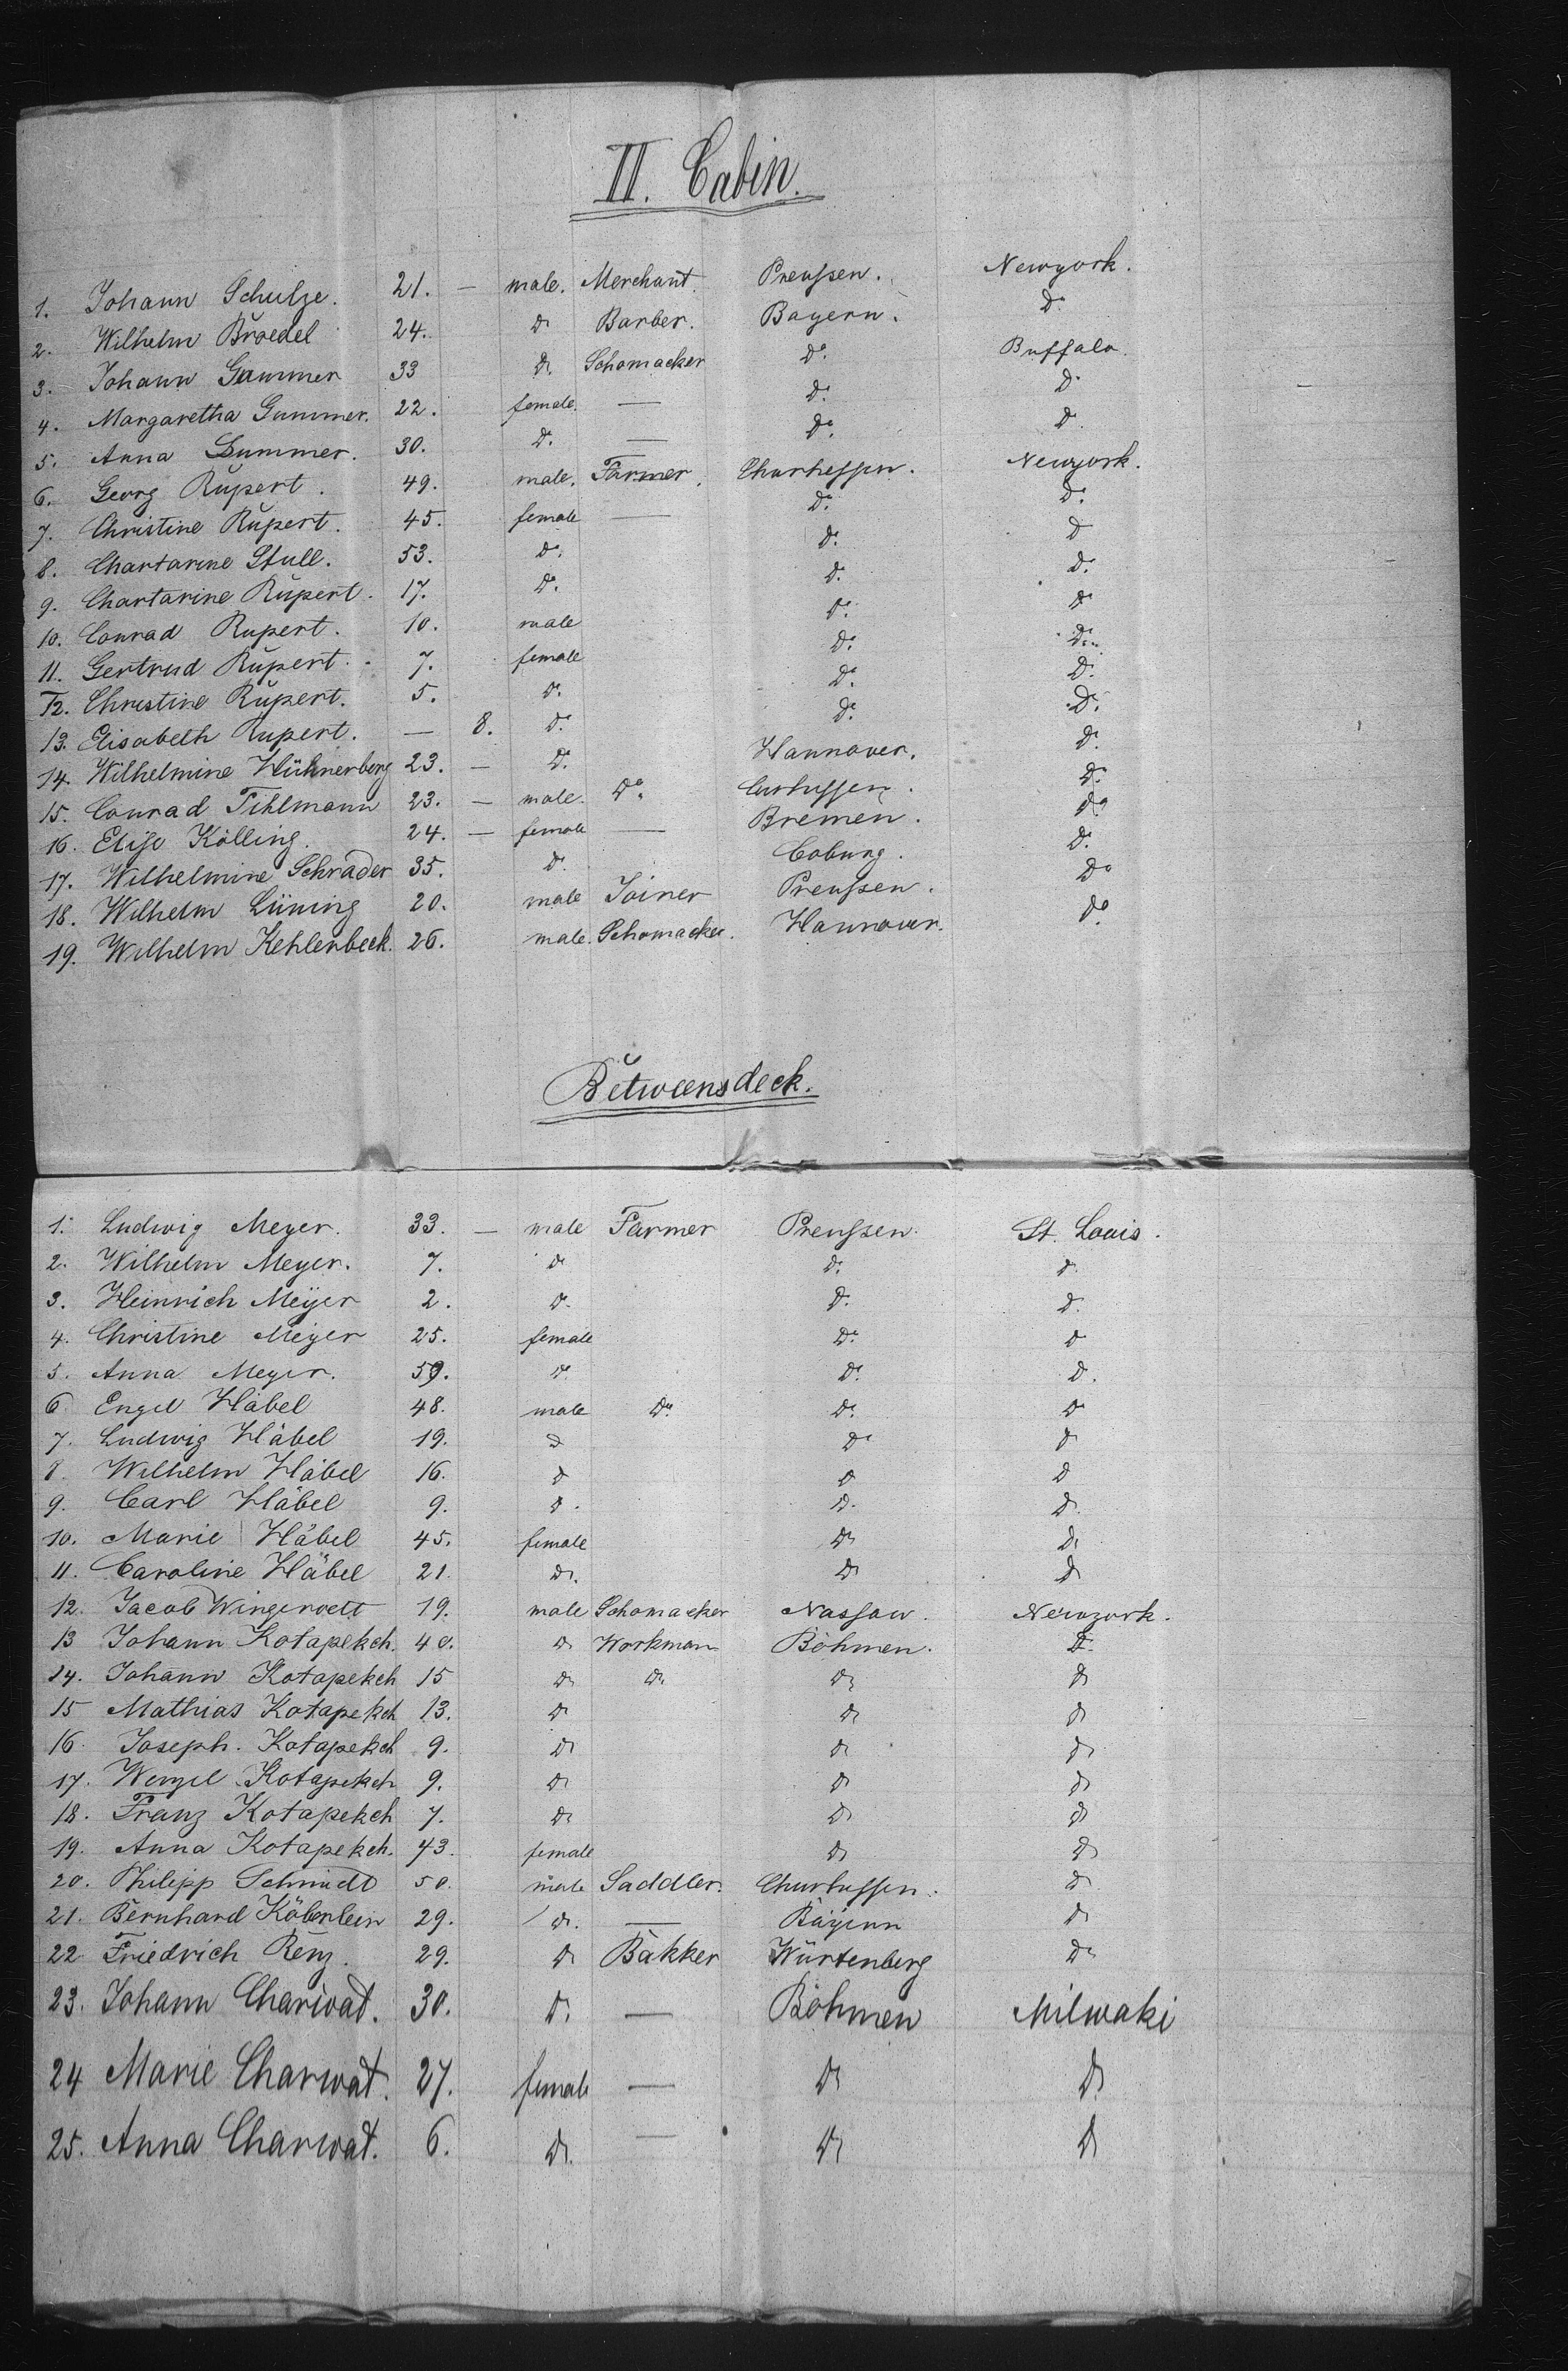 II. Cabin.
1. Johann Schulze. 21. — male. Merchant. Preußen. Newyork.
2. Wilhelm Broedel 24. do Barber. Bayern. do
3. Johann Gummer 33 do. Schomacker do. Buffalo.
4. Margaretha Gummer. 22. female. — do. do
5. Anna Gummer. 30. do. — do. do
6. Georg Rupert. 49. male. Farmer. Churhessen. Newyork.
7. Christine Rupert. 45. female — do. do.
8. Chartarine Stull. 53. do. do. do
9. Chartarine Rupert. 17. do. do. do.
10. Conrad Rupert. 10. male do. do
11. Gertrud Rupert. 7. female do. do.
12. Christine Rupert. 5. do. do. do.
13. Elisabeth Rupert. — 8. do. do. do.
14. Wilhelmine Hühnerberg 23. — do. Hannover. do.
15. Conrad Tihlmann 23. — male. do. Curhessen. do.
16. Elise Kölling. 24. — female — Bremen. do
17. Wilhelmine Schrader 35. do. Coburg. do.
18. Wilhelm Lüning 20. male Joiner Preußen. do
19. Wilhelm Kehlenbeck. 26. male. Schomacker. Hannover. do.
Betweensdeck.
1. Ludwig Meyer. 33. — male Farmer Preußen. St. Louis.
2. Wilhelm Meyer. 7. do do. do
3. Heinrich Meyer 2. do. do. do.
4. Christine Meyer 25. female do. do
5. Anna Meyer. 59. do do. do.
6 Engel Häbel 48. male do. do. do
7. Ludwig Häbel 19. do do do
8. Wilhelm Häbel 16. do do do
9. Carl Häbel 9. do. do. do.
10. Marie Häbel 45. female do do
11. Caroline Häbel 21. do. do do
12. Jacob 19. male Schomacker Nassau. Newyork.
13 Johann Kotapekch. 40. do Workman Böhmen. do.
14. Johann Kotapekch 15 do do do do
15 Mathias Kotapekch 13. do do do
16. Joseph. Kotapekch 9. do do do
17. Wenzel Kotapekch 9. do do do
18. Franz Kotapekch 7. do do do
19. Anna Kotapekch. 43. female do do
20. Philipp Schmidt 50. male Saddler. Churhessen. do
21. Bernhard Köberlein 29. do. — Bayern do
22 Friedrich Renz. 29. do Bakker Würtenberg do
23. Johann Charwat. 30. do. — Böhmen Milwaki
24 Marie Charwat. 27. female — do do
25. Anna Charwat. 6. do. — do do